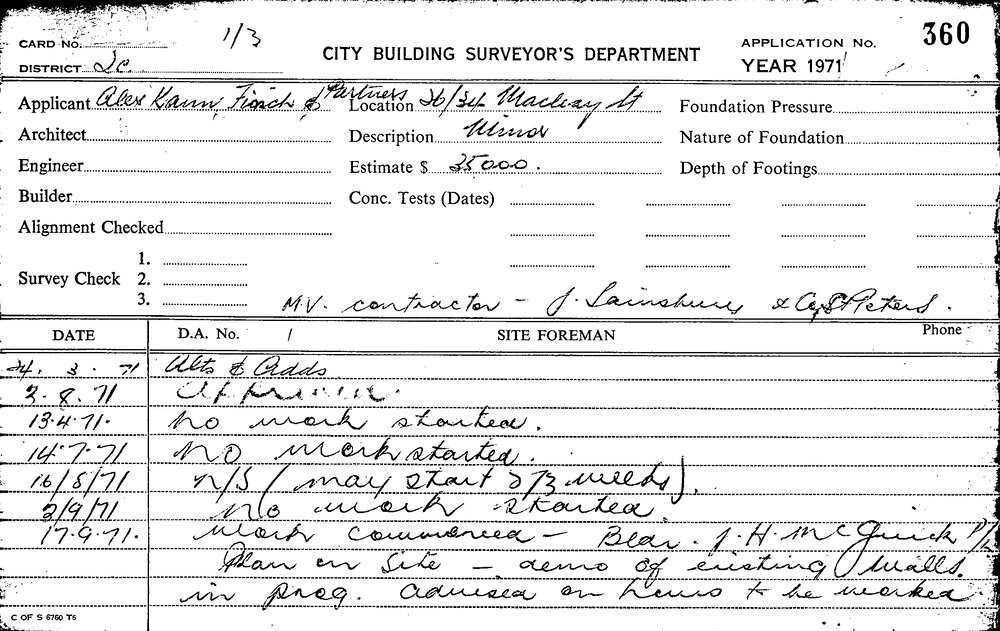 1/3
360
CARD No.
CITY BUILDING SURVEYOR'S DEPARTMENT
APPLICATION No.
DISTRICT 2c.
YEAR 1971
Applicant Alex Kann, Finch & Partners Location 26/34 Macleay St Foundation Pressure
Architect Description Minor Nature of Foundation
Engineer Estimate $ 35000. Depth of Footings
Builder Conc. Tests (Dates)
Alignment Checked
Survey Check 1.
2.
3.
M.V. contractor - J. Sainsbury & Co, St Peters.
DATE D.A. No. / SITE FOREMAN Phone
24. 3. 71 Alts & Adds
2.8.71
13.4.71. No work started.
14.7.71 No work started.
16/8/71 N/S (may start 2/3 weeks).
2/9/71 No work started.
17.9.71. Work commenced - Bldr. J. H. McGuick P/L
Plan on Site - demo of existing walls.
in prog. Advised on hours to be worked
C OF S 6760 T6